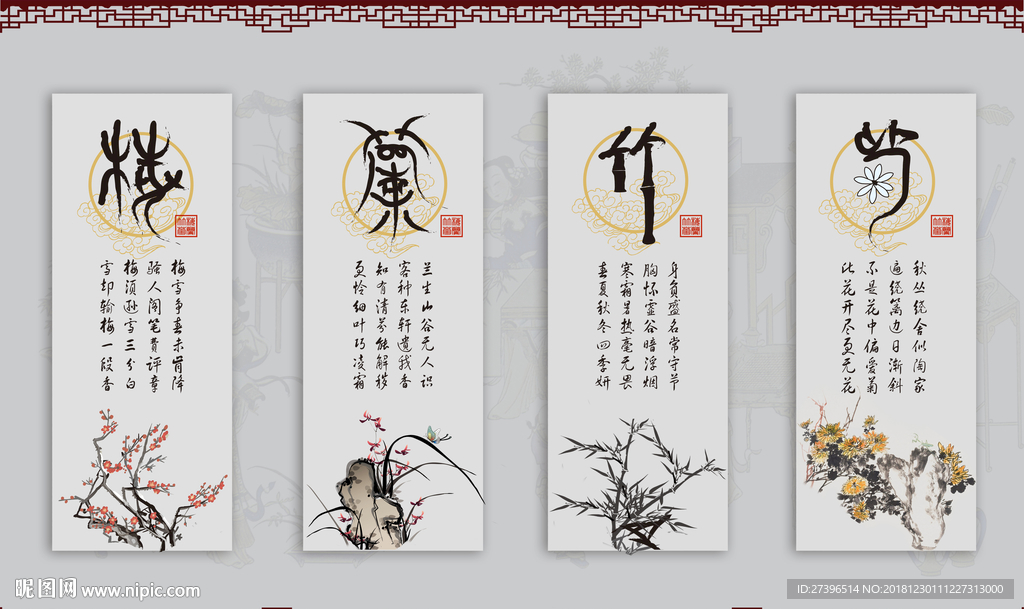 梅
梅雪争春未肯降
骚人阁笔費评章
梅须逊雪三分白
雪却输梅一段香
蘭
兰生山谷无人识
客种东轩遗我香
知有清芬能解秽
更怜细叶巧凌霜
竹
身负盛名常守节
胸怀虚谷暗浮烟
寒霜暑热毫无畏
春夏秋冬四季妍
菊
秋丛绕舍似陶家
遍绕篱边日渐斜
不是花中偏爱菊
此花开尽更无花
昵图网 www.nipic.com
ID:27396514 NO:20181230111227313000